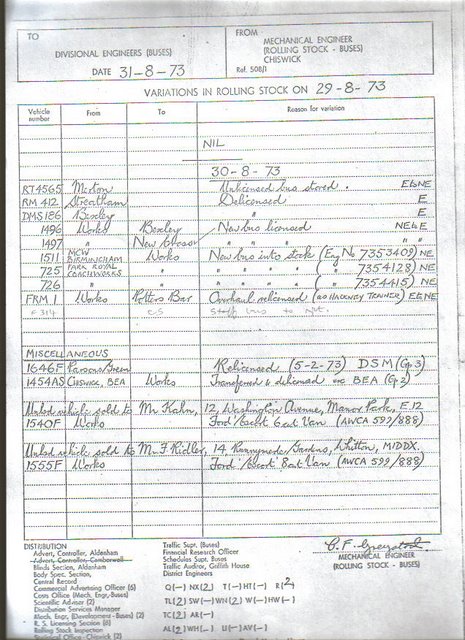 TO
DIVISIONAL ENGINEERS (BUSES)
DATE 31-8-73
FROM
MECHANICAL ENGINEER
(ROLLING STOCK - BUSES)
CHISWICK
Ref. 508/1
VARIATIONS IN ROLLING STOCK ON 29-8-73
Vehicle number From To Reason for variation
NIL
30-8-73
RT4565 Merton Unlicensed bus stored. E&NE
RM 412 Streatham Delicensed E
DMS186 Bexley " E
1496 Works Bexley New bus licensed NE&E
1497 " New Cross " " " " "
1511 MCW BIRMINGHAM Works New bus into stock (Eng No 7353409) NE
725 PARK ROYAL COACHWORKS " " " " ( " 7354128) NE
726 " " " " " ( " 7354415) NE
FRM 1 Works Potters Bar Overhaul relicensed (as HACKNEY TRAINER) E&NE
MISCELLANEOUS
1646F Parsons Green Relicensed (5-2-73) DSM (Gp 3)
1454AS CHISWICK, BEA Works Transferred & delicensed exc BEA (Gp 2)
Unlcd vehicle sold to Mr Kahn, 12, Washington Avenue, Manor Park, E.12
1540F Works Ford 'Escort' 6cwt Van (AWCA 599/888)
Unlcd vehicle sold to Mr F Ridler, 14, Runnymede Gardens, Whitton, MIDDX.
1555F Works Ford 'Escort' 8cwt Van (AWCA 599/888)
DISTRIBUTION
Advert, Controller, Aldenham
Advert, Controller, Camberwell
Blinds Section, Aldenham
Body Spec. Section,
Central Record
Commercial Advertising (6)
Costs Office (Mech. Engr. Buses)
Scientific Adviser (2)
Distribution Services Manager
Mech. Engr. (Development - Buses) (2)
R. S. Licensing Section (6)
Rolling Stock Inspection
Technical Office - Chiswick (2)
Traffic Supt. (Buses)
Financial Research Officer
Schedules Supt. Buses
Traffic Auditor, Griffith House
District Engineers
Q(—) NX(2) T(—) HT(—) R(2)
TL(2) SW(—) WN(2) W(—) HW(—)
TC(2) AR(—)
AE(2) WH(—) U(—) AV(—)
MECHANICAL ENGINEER
(ROLLING STOCK - BUSES)